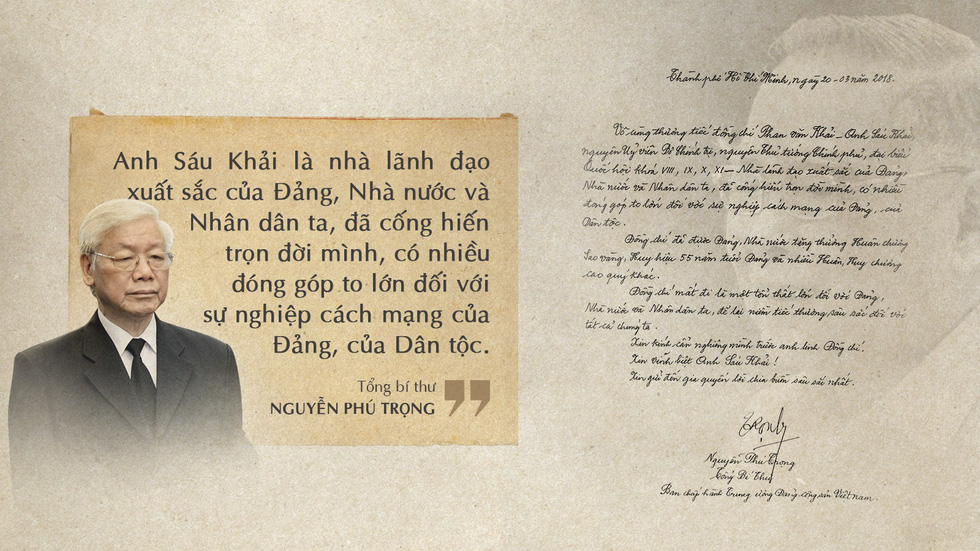 Anh Sáu Khải là nhà lãnh đạo
xuất sắc của Đảng, Nhà nước và
Nhân dân ta, đã cống hiến
trọn đời mình, có nhiều
đóng góp to lớn đối với
sự nghiệp cách mạng của
Đảng, của Dân tộc.
Tổng bí thư
NGUYỄN PHÚ TRỌNG
Thành phố Hồ Chí Minh, ngày 20-03 năm 2018.
Vô cùng thương tiếc đồng chí Phan Văn Khải - Anh Sáu Khải,
nguyên Uỷ viên Bộ Chính trị, nguyên Thủ tướng Chính phủ, đại biểu
Quốc hội khoá VIII, IX, X, XI - Nhà lãnh đạo xuất sắc của Đảng,
Nhà nước và Nhân dân ta, đã cống hiến trọn đời mình, có nhiều
đóng góp to lớn đối với sự nghiệp cách mạng của Đảng, của
Dân tộc.
Đồng chí đã được Đảng, Nhà nước tặng thưởng Huân chương
Sao vàng, Huy hiệu 55 năm tuổi Đảng và nhiều Huân, Huy chương
cao quý khác.
Đồng chí mất đi là một tổn thất lớn đối với Đảng,
Nhà nước và Nhân dân ta, để lại niềm tiếc thương sâu sắc đối với
tất cả chúng ta.
Xin kính cẩn nghiêng mình trước anh linh Đồng chí.
Xin vĩnh biệt Anh Sáu Khải!
Xin gửi đến gia quyến lời chia buồn sâu sắc nhất.
Nguyễn Phú Trọng
Tổng Bí Thư
Ban chấp hành Trung ương Đảng cộng sản Việt nam.